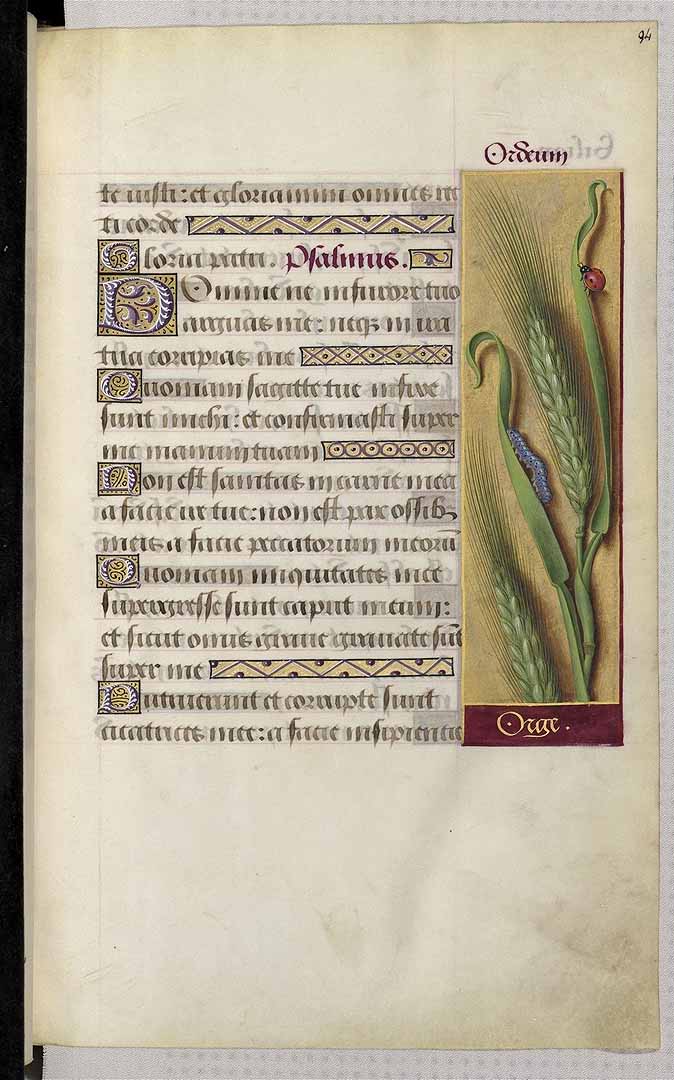 94
Ordeum
te iusti: et gloriamini omnes rec
ti corde
Gloria patri. Psalmus.
Domine ne in furore tuo
arguas me: neqz in ira
tua corripias me
Quoniam sagitte tue infixe
sunt michi: et confirmasti super
me manum tuam
Non est sanitas in carne mea
a facie ire tue: non est pax ossibz
meis a facie peccatorum meorū
Quoniam iniquitates mee
supergresse sunt caput meum:
et sicut onus grave gravate sūt
super me
Putruerunt et corrupte sunt
cicatrices mee: a facie insipientie
Orge.